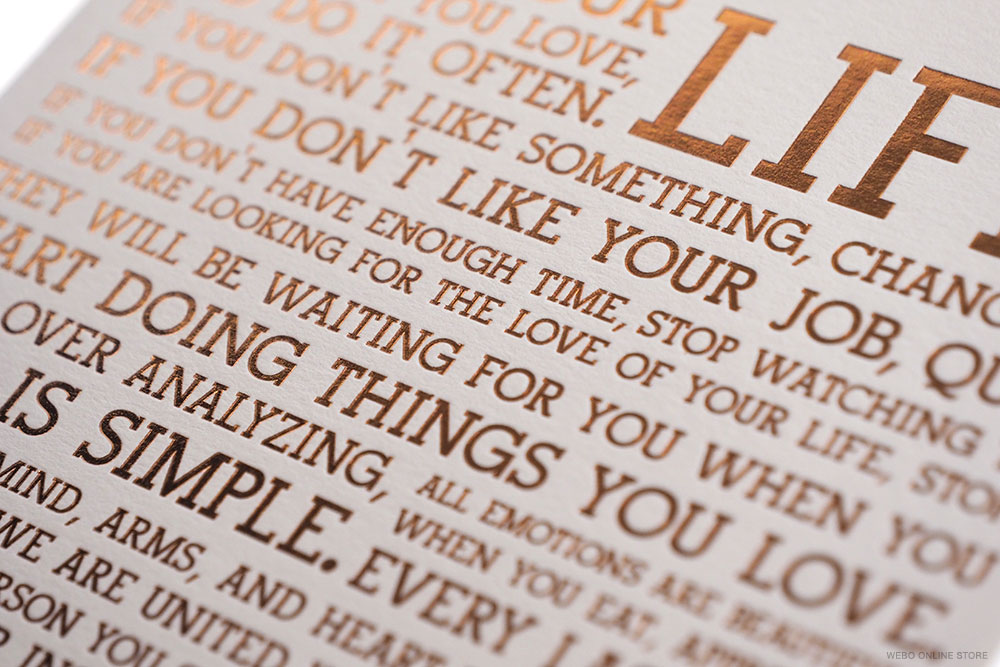 OUR LIF
YOU LOVE,
DO IT OFTEN.
IF YOU DON'T LIKE SOMETHING, CHANG
IF YOU DON'T LIKE YOUR JOB, QU
IF YOU DON'T HAVE ENOUGH TIME, STOP WATCHING
IF YOU ARE LOOKING FOR THE LOVE OF YOUR LIFE, STO
THEY WILL BE WAITING FOR YOU WHEN YOU
ART DOING THINGS YOU LOVE.
OVER ANALYZING, ALL EMOTIONS ARE BEAUTIFUL
IS SIMPLE. WHEN YOU EAT,
MIND, ARMS, AND HEART
EVERY
WE ARE UNITED
RSON YOU
WEBO ONLINE STORE